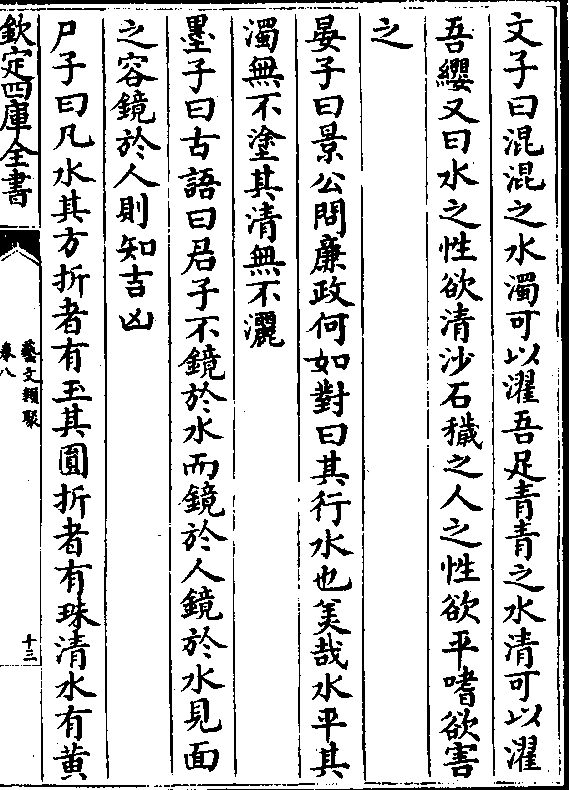 文子曰混混之水濁可以濯吾足青青之水清可以濯
吾纓又曰水之性欲清沙石穢之人之性欲平嗜欲害
之
晏子曰景公問廉政何如對曰其行水也美哉水平其
濁無不塗其清無不灑
墨子曰古語曰君子不鏡於水而鏡於人鏡於水見面
之容鏡於人則知吉凶
尸子曰凡水其方折者有玉其圓折者有珠清水有黄
欽定四庫全書
藝文類聚
卷八
十三